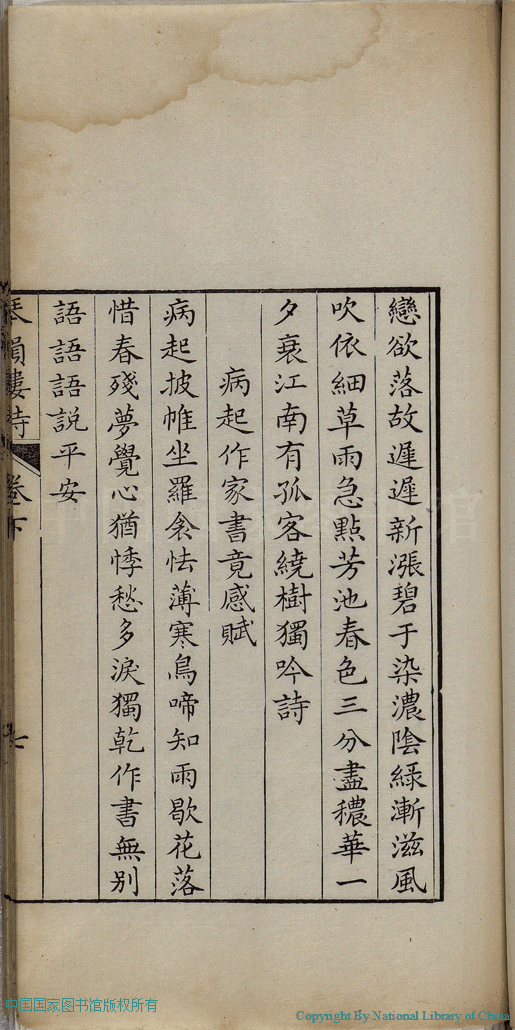 戀欲落故遲遲新漲碧于染濃陰綠漸滋風
吹依細草雨急點芳池春色三分盡穠華一
夕衰江南有孤客繞樹獨吟詩
病起作家書竟感賦
病起披帷坐羅衾怯薄寒鳥啼知雨歇花落
惜春殘夢覺心猶悸愁多淚獨乾作書無別
語語語説平安
琴韻樓詩 卷下
中国国家图书馆版权所有
Copyright By National Library of China